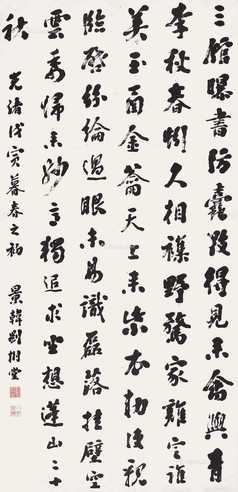 三館曝書防蠹毀得見來禽與青
李秋春蚓久相襍野鶩家雞定誰
美玉函金龠天上來紫衣勅使親
臨啓紛綸過眼未易識磊落挂壁空
雲委歸來妙意獨追求坐想蓬山二十
秋
光緒戊寅暮春之初 景韓劉樹堂